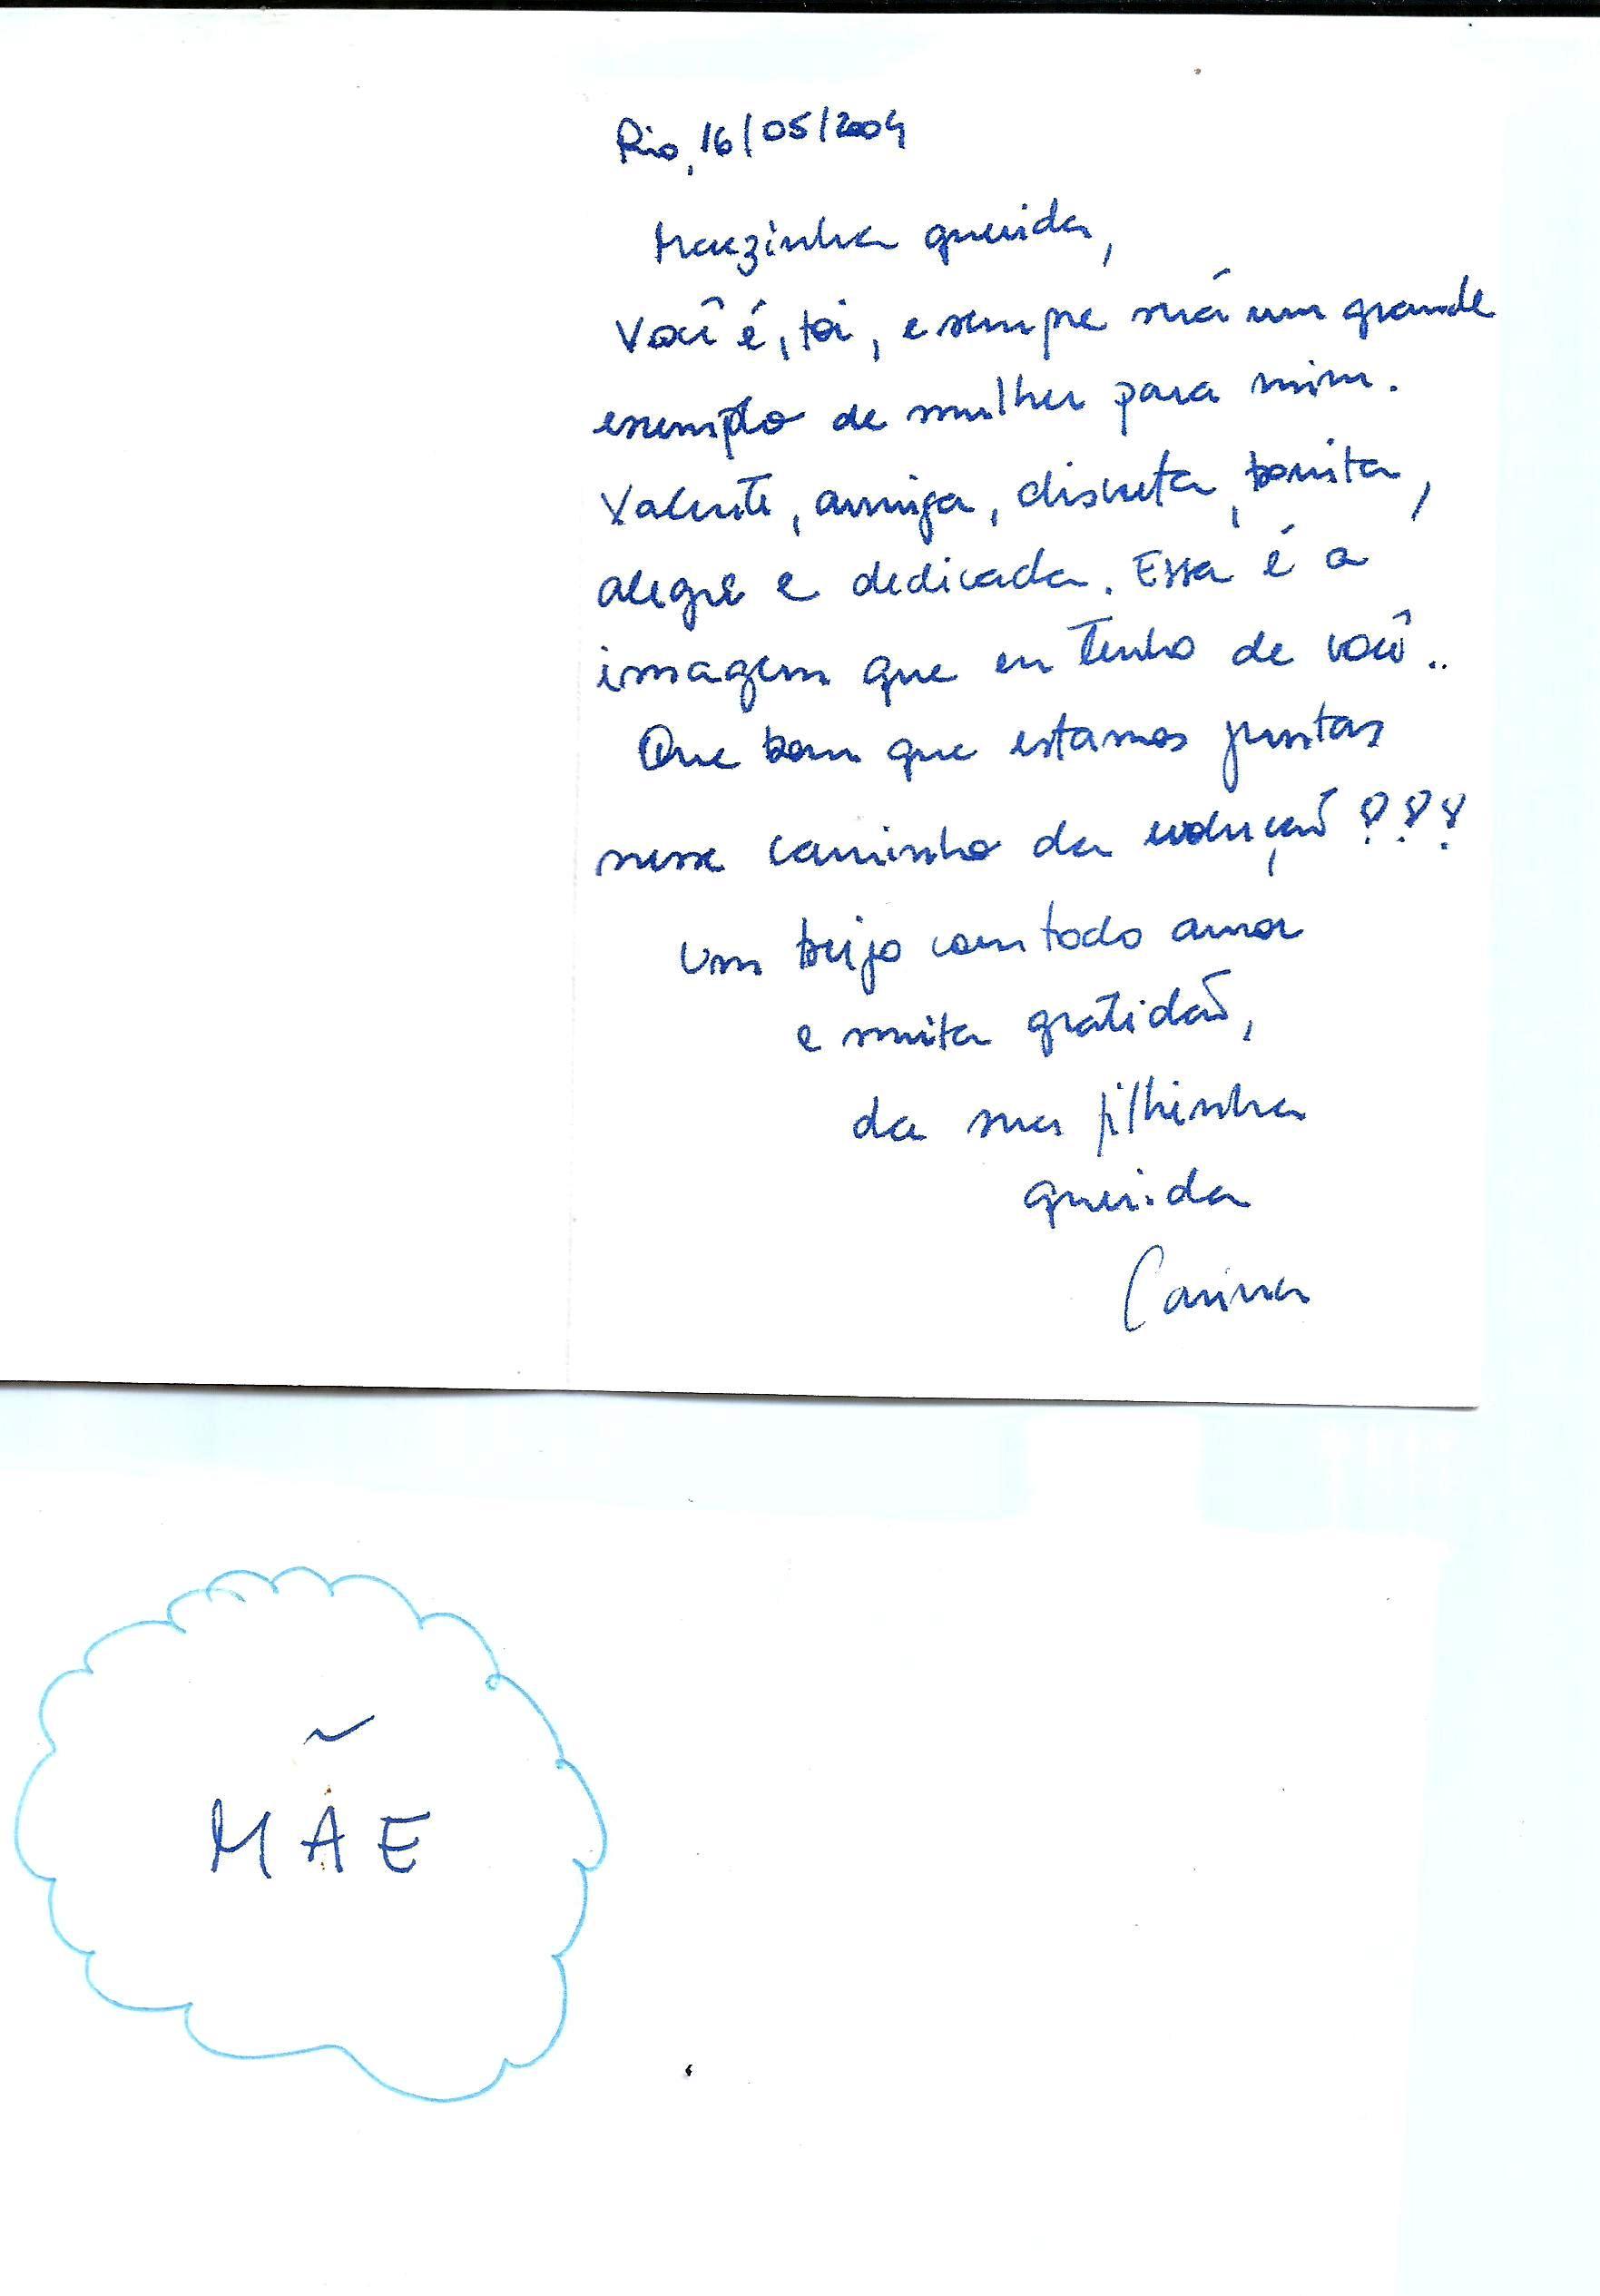 Rio, 16/05/2004
Mãezinha querida,
Você é, foi, e sempre será um grande
exemplo de mulher para mim.
Valente, amiga, discreta, bonita,
alegre e dedicada. Essa é a
imagem que eu tenho de você..
Que bom que estamos juntas
nesse caminho da evolução!!!
Um beijo com todo amor
e muita gratidão,
da sua filhinha
querida
Carina
MÃE